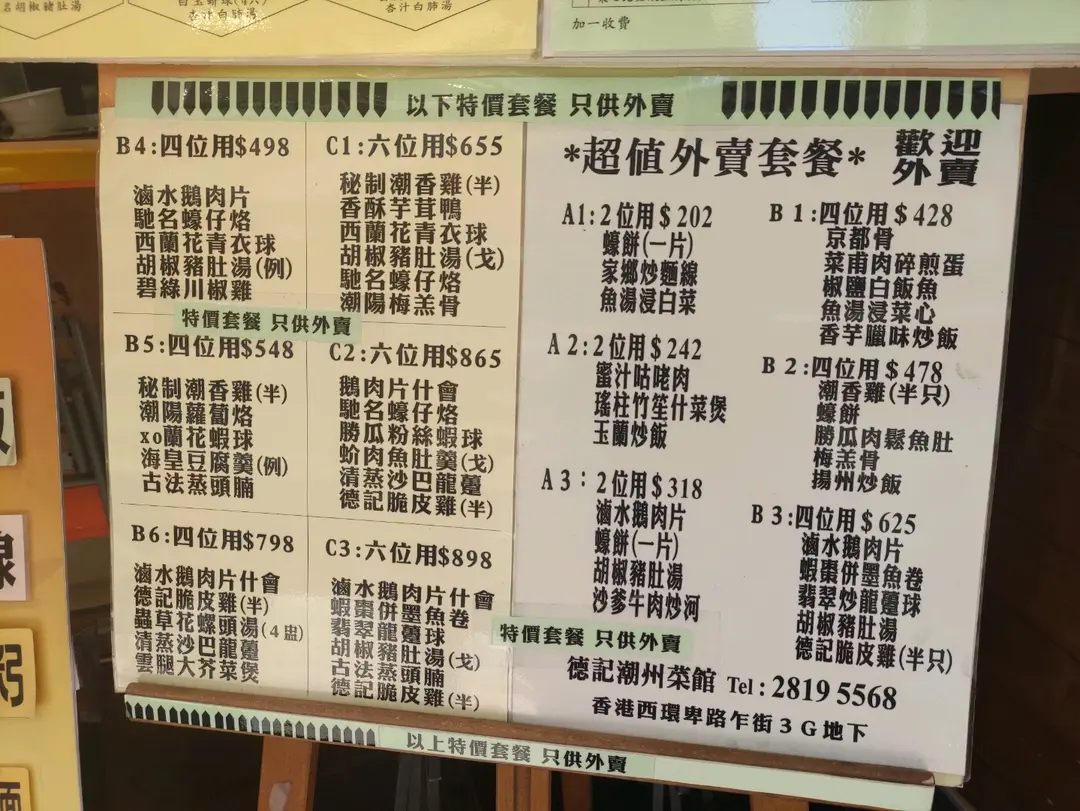 杏汁白肺湯
杏汁白肺湯
加一收費
以下特價套餐 只供外賣
B4:四位用$498
滷水鵝肉片
馳名蠔仔烙
西蘭花青衣球
胡椒豬肚湯(例)
碧綠川椒雞
C1:六位用$655
秘制潮香雞(半)
香酥芋茸鴨
西蘭花青衣球
胡椒豬肚湯(戈)
馳名蠔仔烙
潮陽梅羔骨
特價套餐 只供外賣
B5:四位用$548
秘制潮香雞(半)
潮陽蘿蔔烙
xo蘭花蝦球
海皇豆腐羹(例)
古法蒸頭腩
C2:六位用$865
鵝肉片什會
馳名蠔仔烙
勝瓜粉絲蝦球
蚧肉魚肚羹(戈)
清蒸沙巴龍躉
德記脆皮雞(半)
B6:四位用$798
滷水鵝肉片什會
德記脆皮雞(半)
蟲草花螺頭湯(4盅)
清蒸沙巴龍躉
雲腿大芥菜煲
C3:六位用$898
滷水鵝肉片什會
蝦棗併墨魚卷
翡翠龍躉球
胡椒豬肚湯(戈)
古法蒸頭腩
德記脆皮雞(半)
*超值外賣套餐*
歡迎
外賣
A1:2位用$202
蠔餅(一片)
家鄉炒麵線
魚湯浸白菜
A2:2位用$242
蜜汁咕咾肉
瑤柱竹笙什菜煲
玉蘭炒飯
A3:2位用$318
滷水鵝肉片
蠔餅(一片)
胡椒豬肚湯
沙爹牛肉炒河
B1:四位用$428
京都骨
菜甫肉碎煎蛋
椒鹽白飯魚
魚湯浸菜心
香芋臘味炒飯
B2:四位用$478
潮香雞(半只)
蠔餅
勝瓜肉鬆魚肚
梅羔骨
揚州炒飯
B3:四位用$625
滷水鵝肉片
蝦棗併墨魚卷
翡翠炒龍躉球
胡椒豬肚湯
德記脆皮雞(半只)
特價套餐 只供外賣
德記潮州菜館 Tel:2819 5568
香港西環卑路乍街3G地下
以上特價套餐 只供外賣